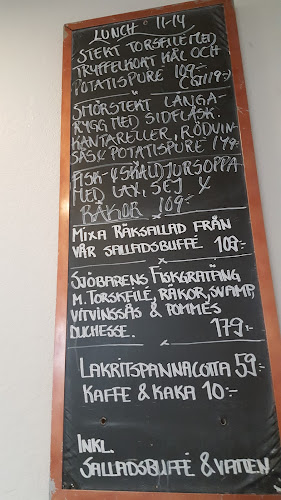 LUNCH 11-14
STEKT TORSKFILE MED
TRYFFELKORT KÅL OCH
POTATISPURE 109:-
SMÖRSTEKT LÅNGA-
RYGG MED SIDFLÄSK.
KANTARELLER, RÖDVIN
SÅS & POTATISPURE 149:-
FISK- & SKALDJURSOPPA
MED LAX, SEJ &
RÄKOR 109:-
MIXA RÄKSALLAD FRÅN
VÅR SALLADSBUFFÉ 109:-
SJÖBARENS FISKGRATÄNG
M. TORSKFILÉ, RÄKOR, SVAMP,
VITVINSSÅS & POMMES
DUCHESSE. 179:-
LAKRITSPANNACOTTA 59:-
KAFFE & KAKA 10:-
INKL.
SALLADSBUFFÉ & VATTEN